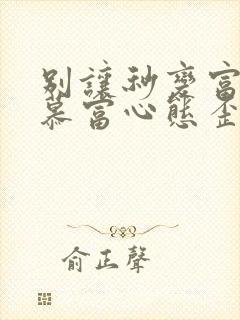 別讓秒變富
慕富心態歪
俞正聲